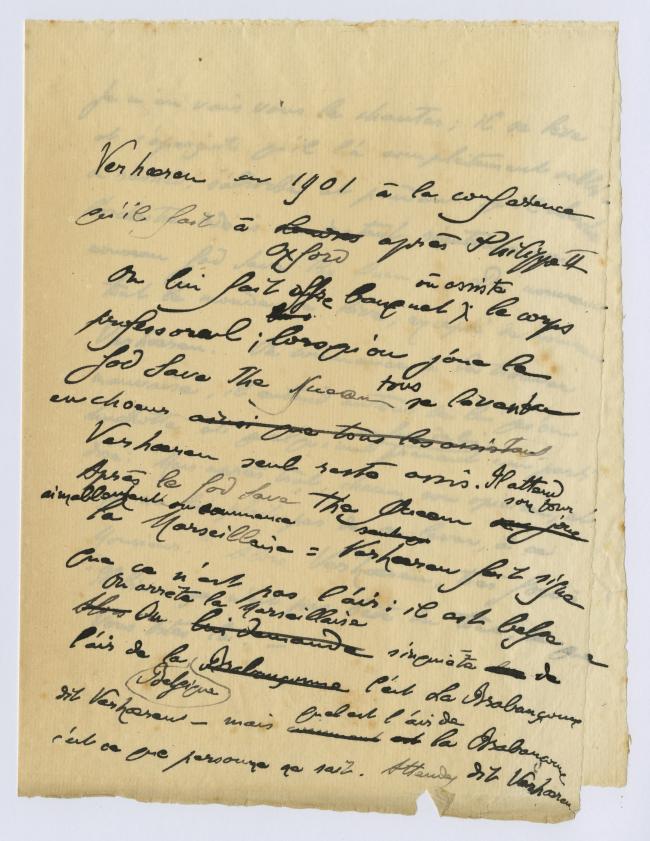 Verhæren en 1901 à la conférence
qu'il fait à Londres après Philippe II
Oxford
On lui fait offre banquet où assiste le corps
professoral ; lorsqu'on joue le
God Save The Queen tous se lèvent
en choeur ainsi que tous les assistants
Verhæren seul reste assis. Il attend
son tour
Après le God Save The Queen on joue
aimablement on commence
la Marseillaise = Verhæren fait signe
que ce n'est pas l'air : il est belge
On arrête la Marseillaise
Alors On lui demande s'inquiète de
l'air de la Brabançonne c'est La Brabançonne
Belgique
dit Verhæren – mais quel est l'air de
comment est la Brabançonne
c'est ce que personne ne sait. Attendez dit Verhæren